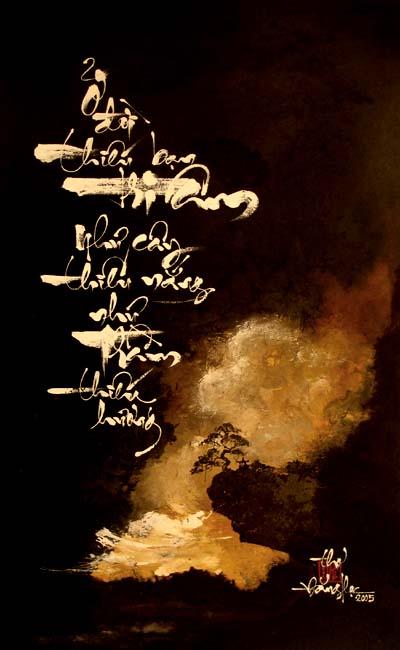 Ở
đời
thiếu bạn
tri âm
Như cây
thiếu nắng
như
trầm
thiếu
hương
thư
Đăng Học
2005